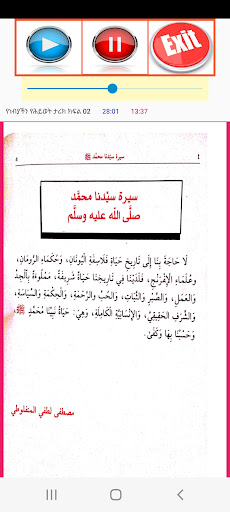 Exit
የነብያችን የሕይወት ታሪክ ክፍል 02 28:01 13:37
سيرة سيّدنا محمّد ﷺ
سيرة سيّدنا محمَّد
صلَّى اللّه عليه وسلَّم
لَا حَاجَةَ بِنَا إِلَى تَارِيخِ حَيَاةِ فَلَاسِفَةِ الْيُونَانِ، وَحُكَمَاءِ الرُّومَانِ،
وَعُلَمَاءِ الْإِفْرَنْجِ، فَلَدَيْنَا فِي تَارِيخِنَا حَيَاةٌ شَرِيفَةٌ، مَمْلُوءَةٌ بِالْجِدِّ
وَالْعَمَلِ، وَالصَّبْرِ وَالثَّبَاتِ، وَالْحُبِّ وَالرَّحْمَةِ، وَالْحِكْمَةِ وَالسِّيَاسَةِ،
وَالشَّرَفِ الْحَقِيقِيِّ، وَالْإِنْسَانِيَّةِ الْكَامِلَةِ، وَهِيَ: حَيَاةُ نَبِيِّنَا مُحَمَّدٍ ﷺ،
وَحَسْبُنَا بِهَا وَكَفَى.
مصطفى لطفي المنفلوطي